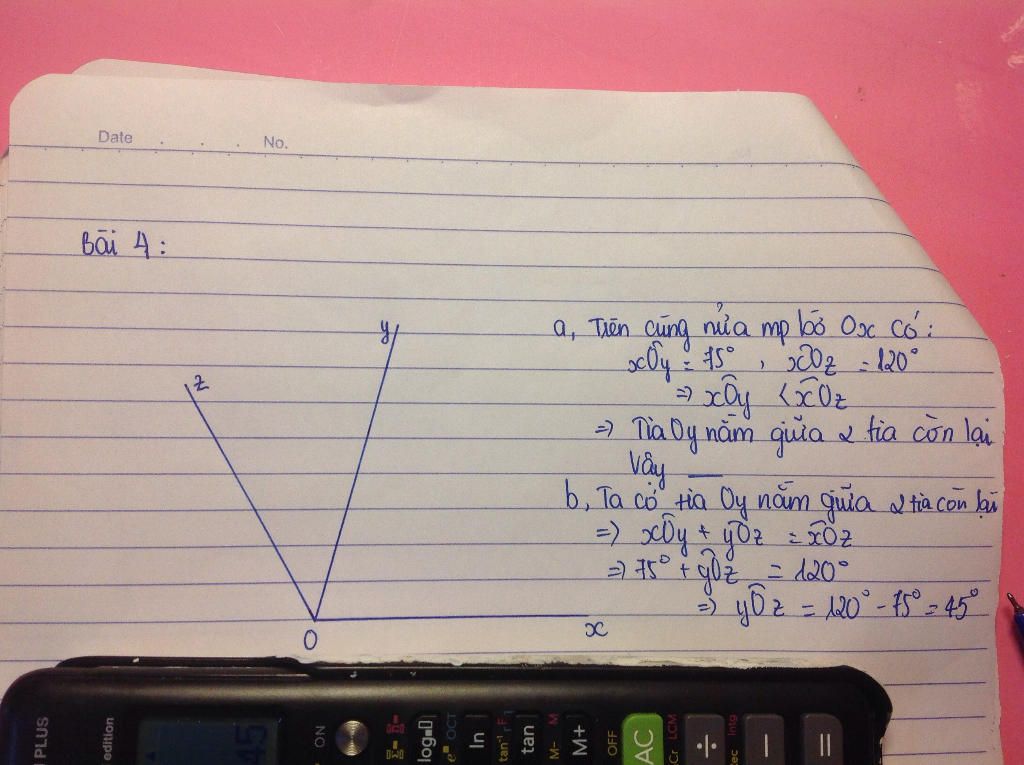 Date . . . No.
Bài 4:
y
z
O
x
a, Trên cùng nửa mp bờ Ox có:
xÔy = 75° , xÔz = 120°
=> xÔy < xÔz
=> Tia Oy nằm giữa 2 tia còn lại
Vậy __
b, Ta có tia Oy nằm giữa 2 tia còn lại
=> xÔy + yÔz = xÔz
=> 75° + yÔz = 120°
=> yÔz = 120° - 75° = 45°
PLUS
edition
45
ON
log
ln
tan⁻¹
tan
M-
M
M+
OFF
AC
LCM
÷
Intg
-
=
OCT